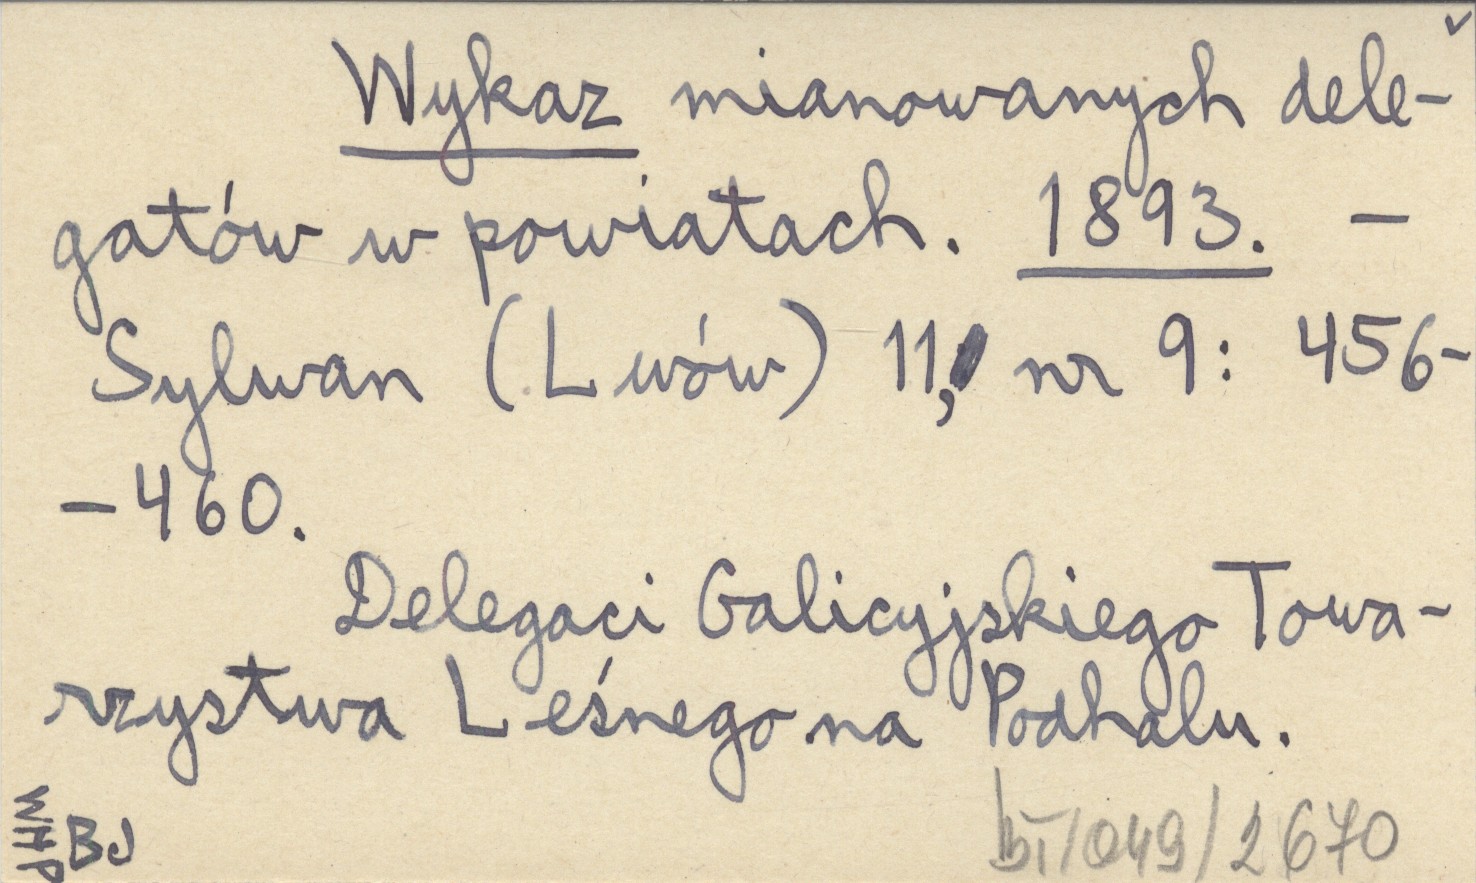 Wykaz mianowanych dele-
gatów w powiatach. 1893. —
Sylwan (Lwów) 11, nr 9: 456-
-460.
Delegaci Galicyjskiego Towa-
rzystwa Leśnego na Podhalu.
WHP
BJ
/049/2670